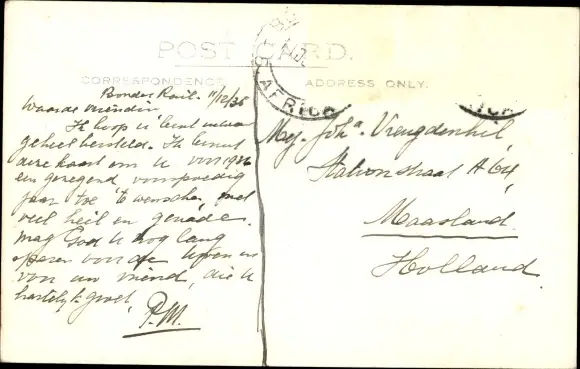 POST CARD.
CORRESPONDENCE
ADDRESS ONLY.
AFRICA
Bonder Rail. 11/12/35
Waarde vriendin
Ik hoop u bent weer
geheel hersteld. Ik benut
deze kaart om u voor 1936
een gezegend, voorspoedig
jaar toe te wenschen, met
veel heil en genade.
mag God u nog lang
sparen voor de uwen en
voor uw vriend, die u
hartelijk groet,
P.M.
Mej. Joha. Vreugdenhil,
Stationstraat A 64,
Maasland.
Holland.